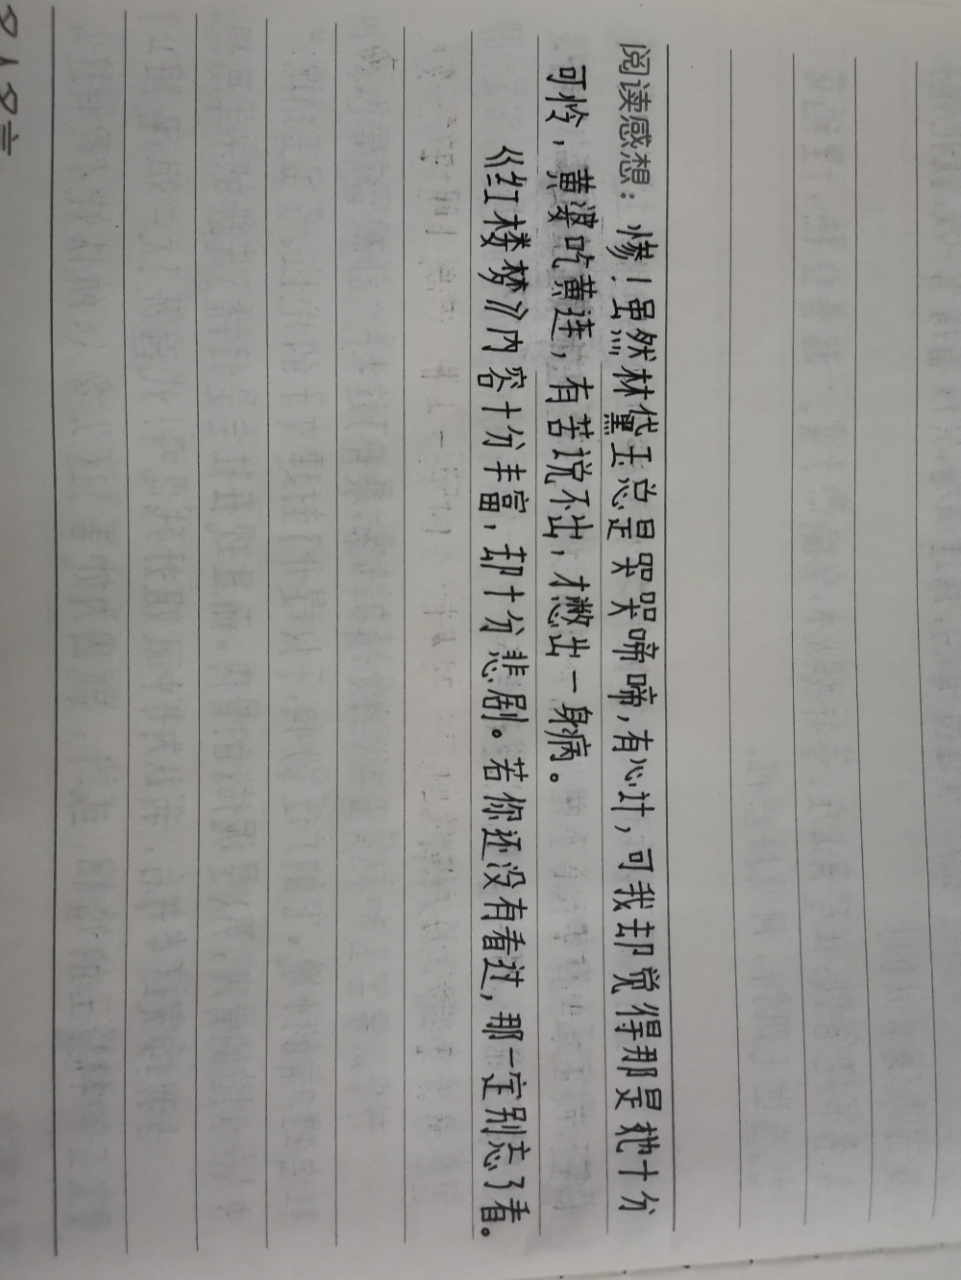 阅读感想：惨！虽然林黛玉总是哭哭啼啼，有心计，可我却觉得那是她十分
可怜，黄婆吃黄连，有苦说不出，才憋出一身病。
《红楼梦》内容十分丰富，却十分悲剧。若你还没有看过，那一定别忘了看。